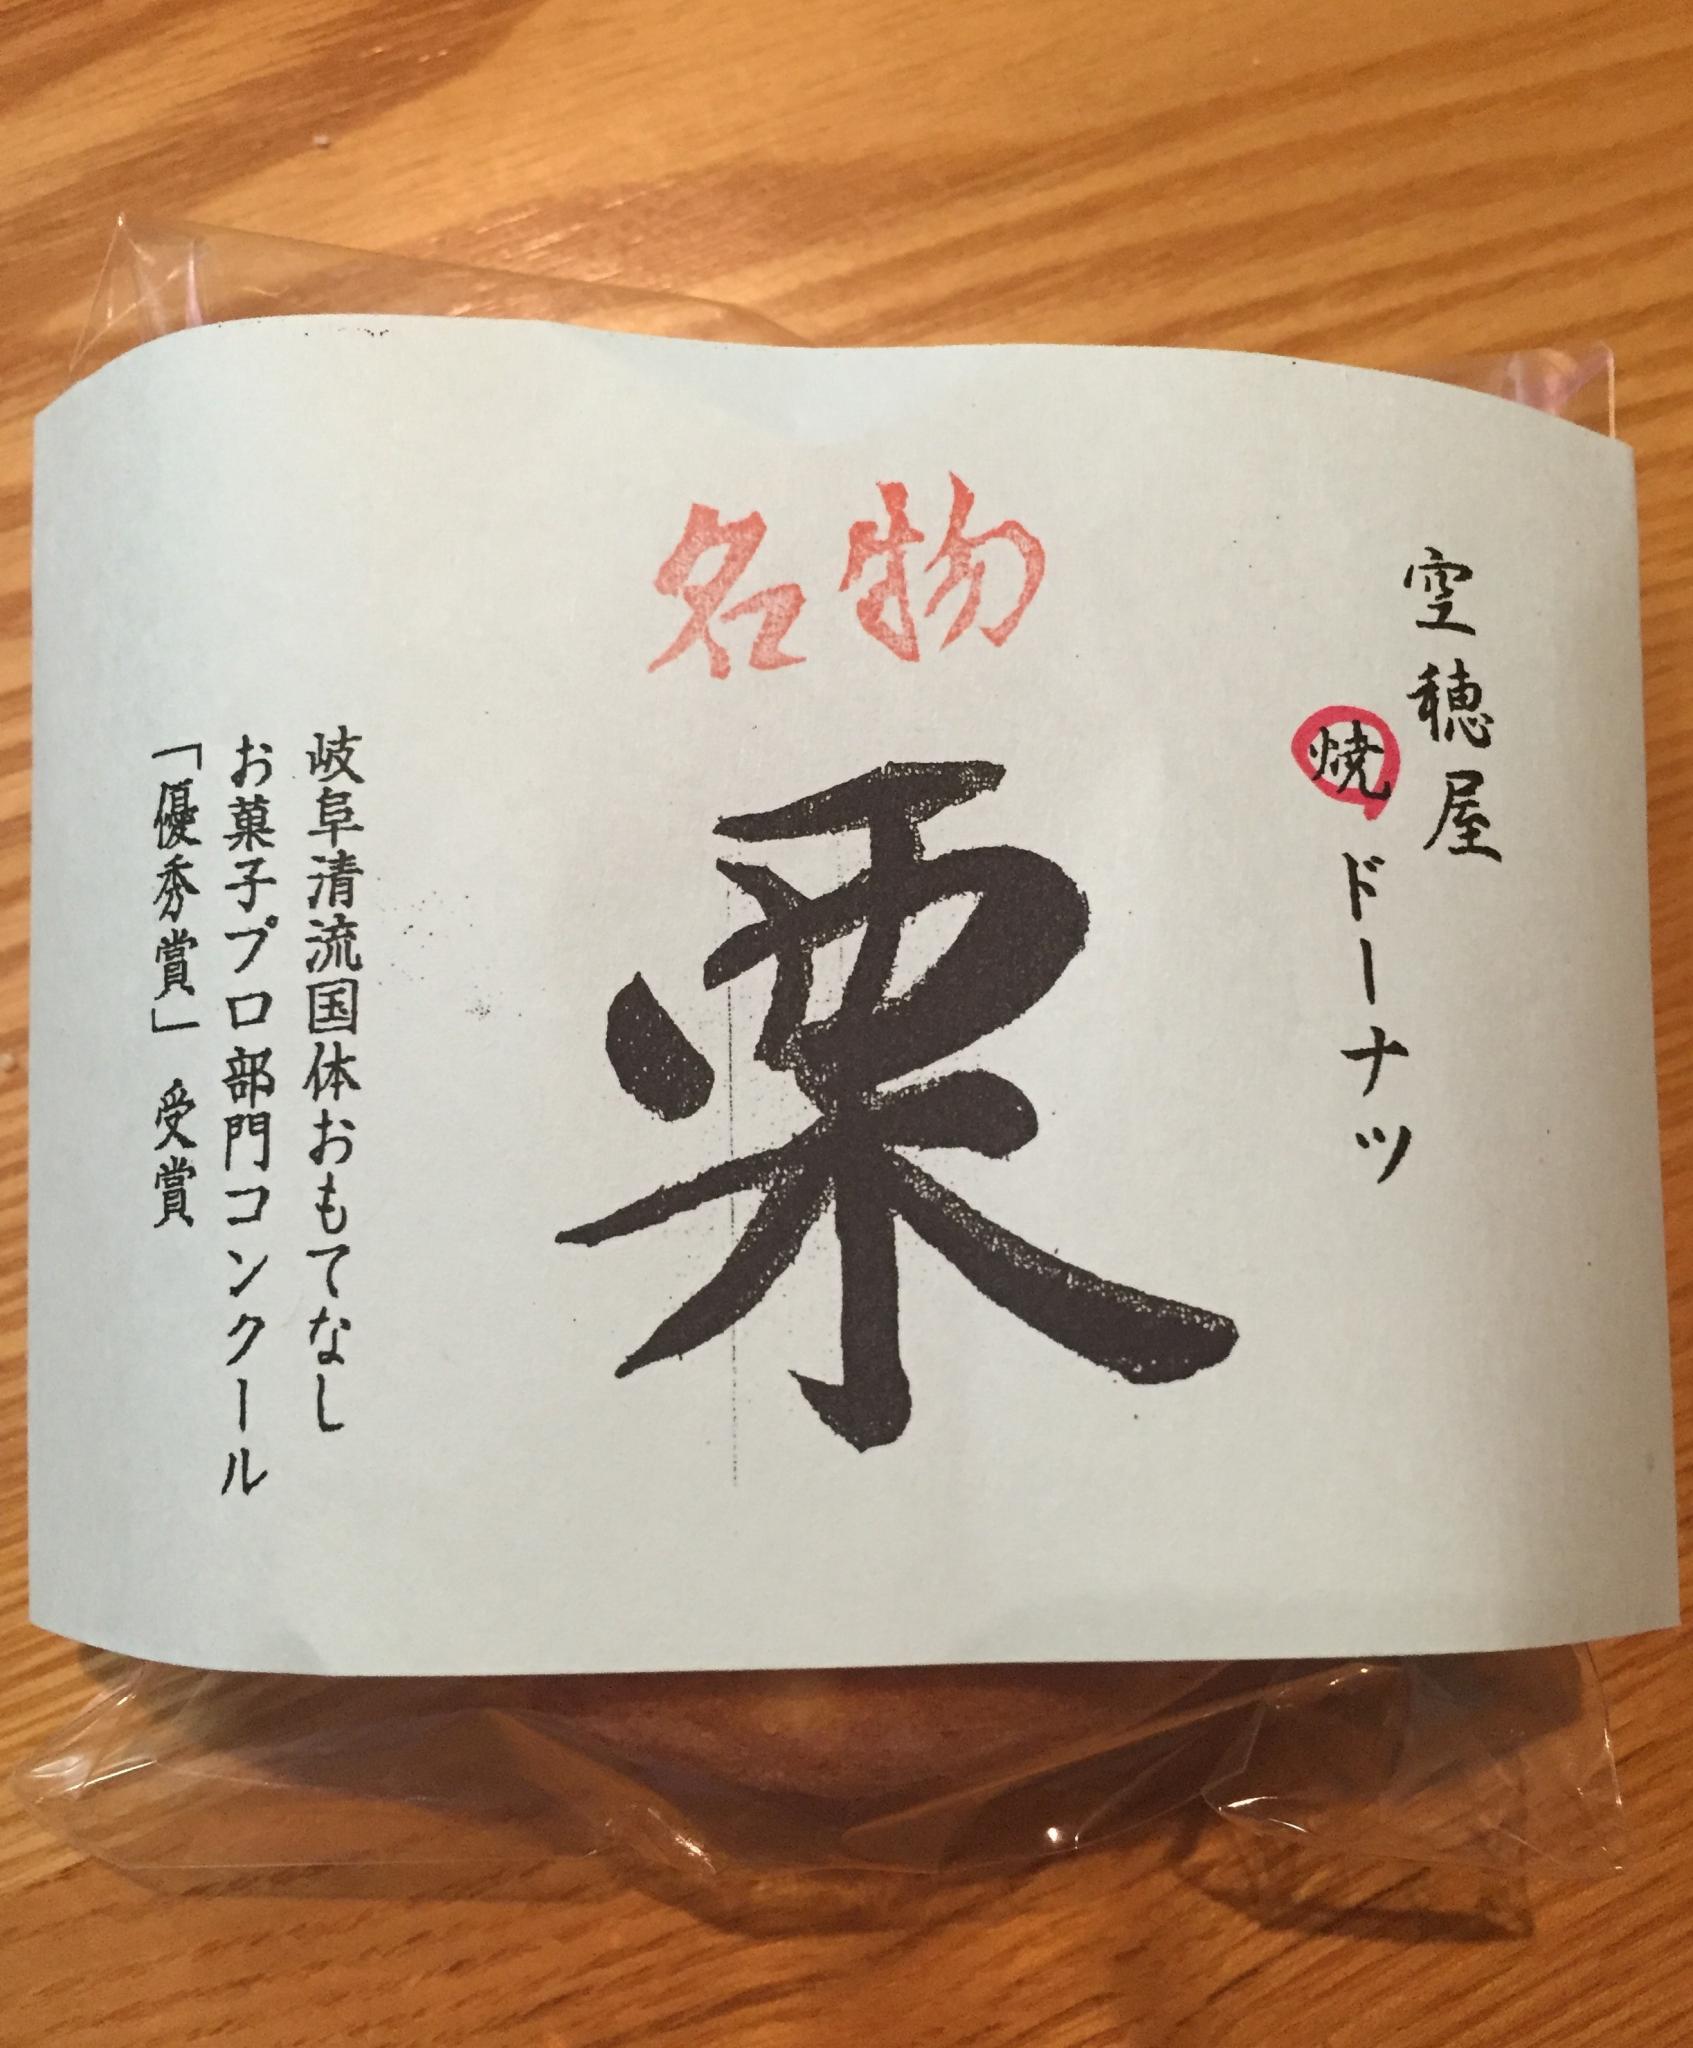 空穂屋
焼ドーナツ
名物
栗
岐阜清流国体おもてなし
お菓子プロ部門コンクール
「優秀賞」受賞